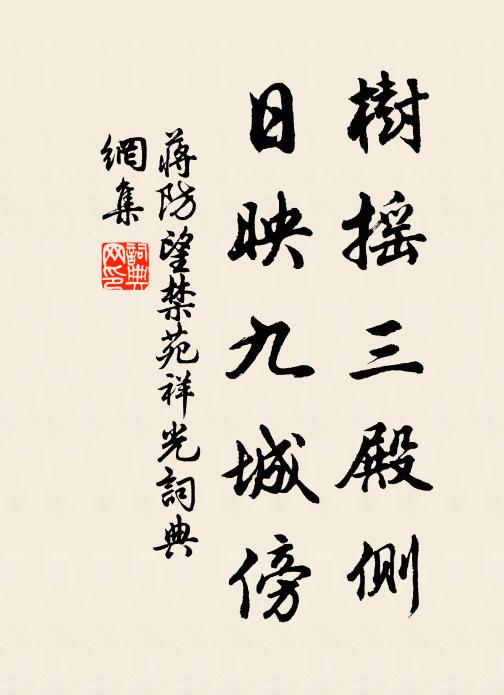 樹摇三殿側
日映九城傍
蔣防望禁苑祥光詞典
網集
詞典網印